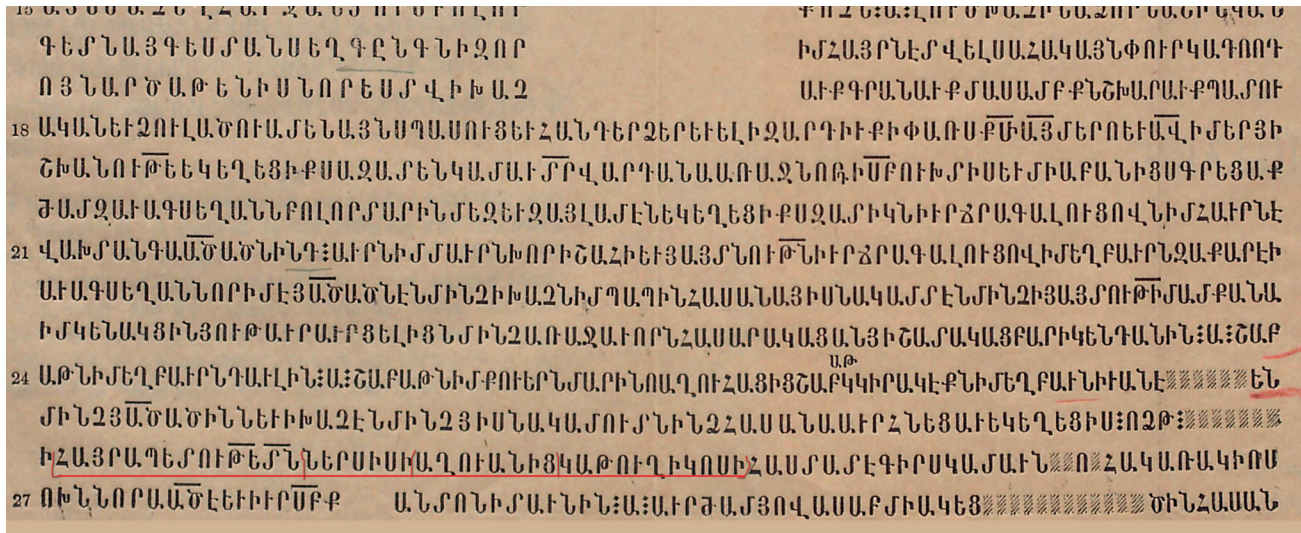 16 ԳԵՏՆԱՅԳԵՍՏԱՆՍԵՂԳԸՆԳՆԻԶՈՐ ԻՄՀԱՅՐՆԷՏՎԵԼՍԱՀԱԿԱՅՆՓՈՒՐԿԱԳՈՌԴ
ՈՅՆԱՐԾԱԹԵՆԻՍՆՈՐԵՍՏՎԻԽԱԶ ԱՒՔԳՐԱՆԱՒՔՄԱՍԱՄԲՔՆՇԽԱՐԱՒՔՊԱՏՈՒ
18 ԱԿԱՆԵՒՁՈՒԼԱԾՈՒԱՄԵՆԱՅՆՍՊԱՍՈՒՑԵՒՀԱՆԴԵՐՁԵՐԵՒԵԼԻԶԱՐԴԻՒՔԻՓԱՌՍՔՄԻԱՅՄԵՐՈԵՒԱՎԻՄԵՐՅԻ
ՇԽԱՆՈՒԹԵԵԿԵՂԵՑԻՔՍԱԶԱՏԵՆԿԱՄԱՒՏՐՎԱՐԴԱՆԱԱՌԱՋՆՈՌԴԻՍԲՈՒԽՏԻՍԵՒՄԻԱԲԱՆԻՑՍԳՐԵՑԱՔ
ԺԱՄԶԱՒԱԳՍԵՂԱՆՆԲՈԼՈՐՏԱՐԻՆՄԵԶԵՒԶԱՅԼԱՄԷՆԵԿԵՂԵՑԻՔՍԶԱՏԻԿՆԻՒՐՃՐԱԳԱԼՈՒՑՈՎՆԻՄՀԱՒՐՆԷ
21 ՎԱԽՏԱՆԳԱԱԾԱԾՆԻՆԴ։ԱՒՐՆԻՄՄԱՒՐՆԽՈՐԻՇԱՀԻԵՒՅԱՅՏՆՈՒԹՆԻՒՐՃՐԱԳԱԼՈՒՑՈՎԻՄԵՂԲԱՒՐՆԶԱՔԱՐԷԻ
ԱՒԱԳՍԵՂԱՆՆՈՐԻՄԷՅԱԾԱԾՆԷՆՄԻՆՉԻԽԱԶՆԻՄՊԱՊԻՆՀԱՍԱՆԱՅԻՍՆԱԿԱՄՏԷՆՄԻՆՉԻՅԱՅՏՈՒԹԻՄԱՄՔԱՆԱ
ԻՄԿԵՆԱԿՑԻՆՅՈՒԹԱՒՐԱՒՐՑԵԼԻՑՆՄԻՆՉԱՌԱՋԱՒՈՐՆՀԱՍԱՐԱԿԱՑԱՆՅԻՇԱՏԱԿԱՑԲԱՐԻԿԵՆԴԱՆԻՆ։Ա։ՇԱԲ
ԱԹ
24 ԱԹՆԻՄԵՂԲԱՒՐՆԴԱՒԼԻՆ։Ա։ՇԱԲԱԹՆԻՄՔՈՒԵՐՆՄԱՐԻՆՈԱՂՈՒՀԱՑԻՑՇԱԲԿԿԻՐԱԿԷՔՆԻՄԵՂԲԱՒՆԻՒԱՆԷ ԵՆ
ՄԻՆՉՅԱԾԱԾԻՆՆԵՒԻԽԱԶԷՆՄԻՆՉՅԻՍՆԱԿԱՄՈՒՏՆԻՆՁՀԱՍԱՆԱՒՐՀՆԵՑԱՒԵԿԵՂԵՑԻՍ։ՈՁԹ։
ԻՀԱՅՐԱՊԵՏՈՒԹԵՏՆՆԵՐՍԻՍԻԱՂՈՒԱՆԻՑԿԱԹՈՒՂԻԿՈՍԻՀԱՍՏԱՏԷԳԻՐՍԿԱՄԱՒՆ Ո ՀԱԿԱՌԱԿԻՌՍ
27 ՈԽՆՆՈՐԱԱԾԷԵՒԻՒՐՍԲՔ ԱՆՏՈՆԻՏԱՒՆԻՆ։Ա։ԱՒՐԺԱՄՅՈՎԱՍԱՓՏԻԱԿԵՑ ԾԻՆՀԱՍԱՆ